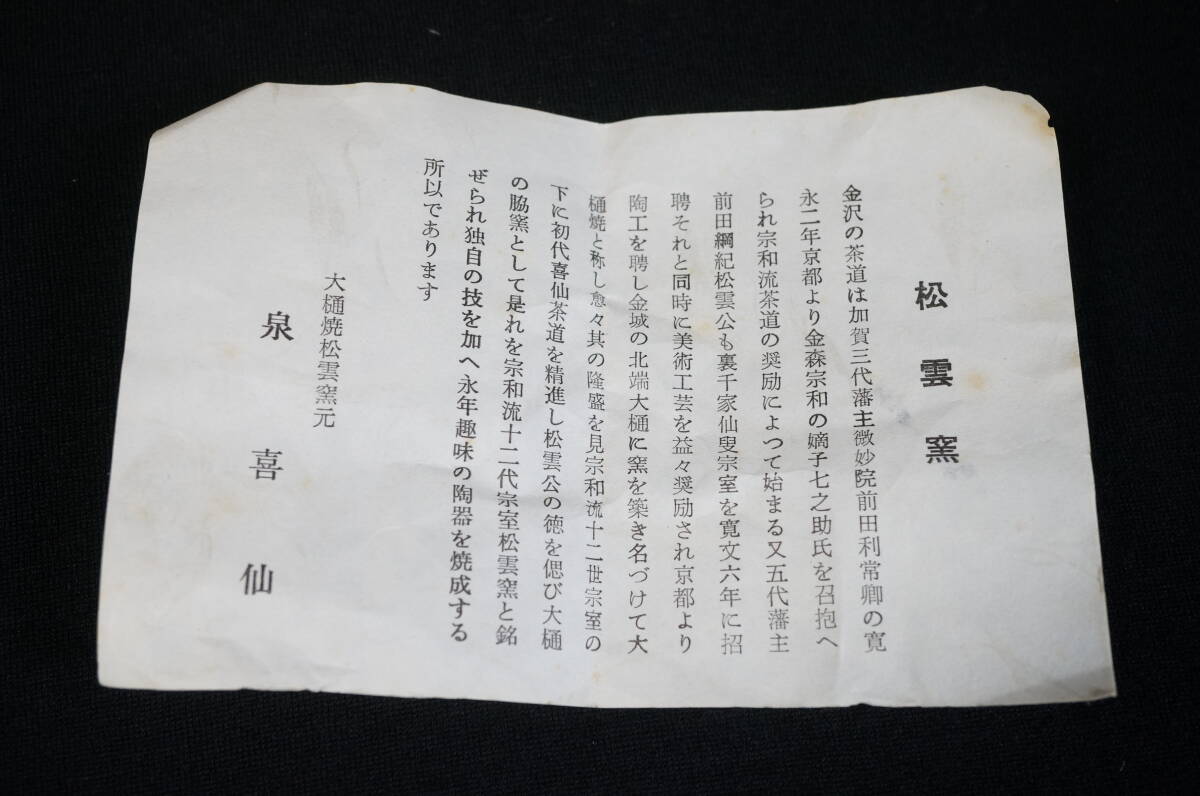 松雲窯
金沢の茶道は加賀三代藩主微妙院前田利常卿の寛
永二年京都より金森宗和の嫡子七之助氏を召抱へ
られ宗和流茶道の奨励によつて始まる又五代藩主
前田綱紀松雲公も裏千家仙叟宗室を寛文六年に招
聘それと同時に美術工芸を益々奨励され京都より
陶工を聘し金城の北端大樋に窯を築き名づけて大
樋焼と称し愈々其の隆盛を見宗和流十二世宗室の
下に初代喜仙茶道を精進し松雲公の徳を偲び大樋
の脇窯として是れを宗和流十二代宗室松雲窯と銘
ぜられ独自の技を加へ永年趣味の陶器を焼成する
所以であります
大樋焼松雲窯元
泉喜仙